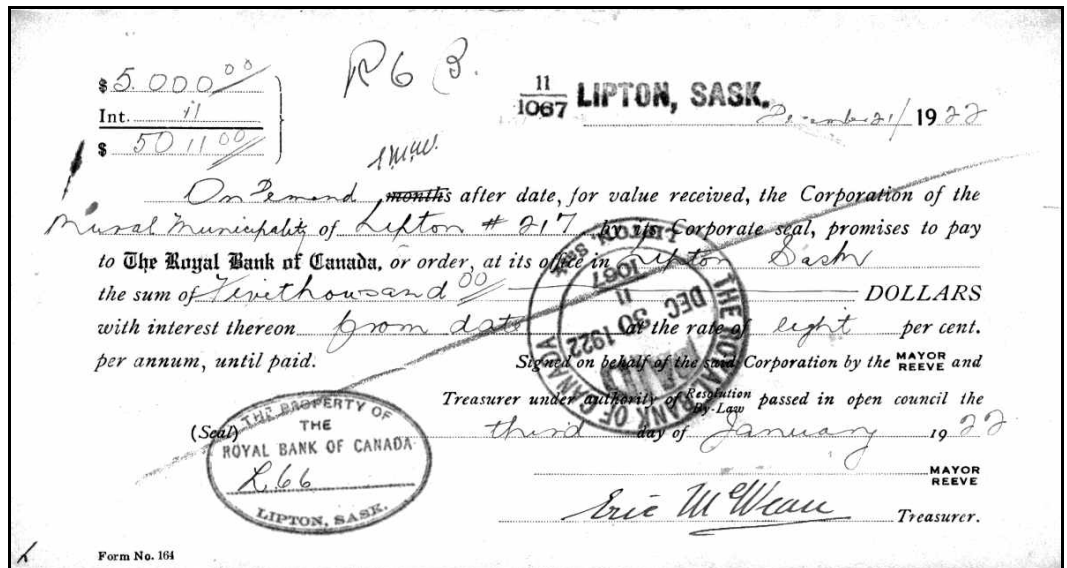 R 6 B.
$ 5.000 00
Int. 11
$ 5011 00
11/1067 LIPTON, SASK. December 21/ 1922
On Demand months after date, for value received, the Corporation of the
Rural Municipality of Lipton # 217, by its Corporate seal, promises to pay
to The Royal Bank of Canada, or order, at its office in Lipton Sask
the sum of Fivethousand 00 DOLLARS
with interest thereon from date at the rate of eight per cent.
per annum, until paid. Signed on behalf of the said Corporation by the MAYOR REEVE and
Treasurer under authority of Resolution By-Law passed in open council the
(Seal) third day of January 1922
MAYOR
REEVE
Eric Treasurer.
THE PROPERTY OF
THE
ROYAL BANK OF CANADA
L66
LIPTON, SASK.
THE ROYAL BANK OF CANADA
LIPTON, SASK
11
1067
DEC 30 1922
PAID
Form No. 164